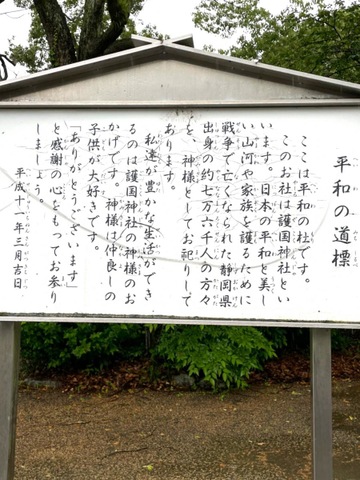 平和の道標
ここは平和の杜です。
このお社は護国神社とい
います。日本の平和と美し
い山河や家族を護るために
戦争で亡くなられた静岡県
出身の約七万六千人の方々
を、神様としてお祀りして
あります。
私達が豊かな生活ができ
るのは護国神社の神様のお
かげです。神様は仲良しの
子供が大好きです。
「ありがとうございます」
と感謝の心をもってお参り
しましょう。
平成十一年三月吉日